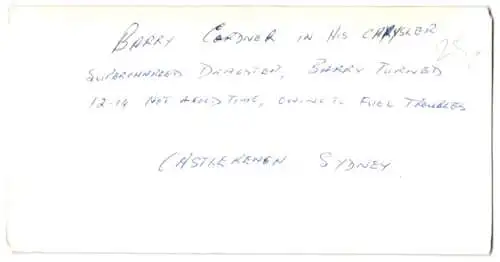 BARRY CORDNER IN HIS CHRYSLER
SUPERCHARGED DRAGSTER, BARRY TURNED
12-14 NOT A GOOD TIME, OWING TO FUEL TROUBLES
CASTLEREAGH SYDNEY.